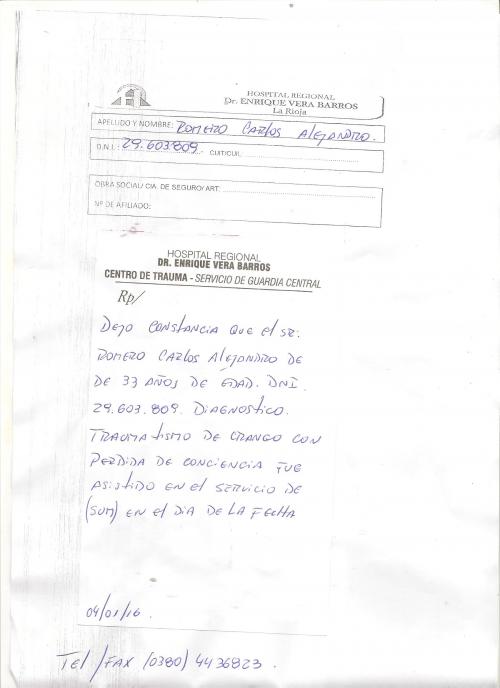 HOSPITAL REGIONAL
Dr. ENRIQUE VERA BARROS
La Rioja
APELLIDO Y NOMBRE: ROMERO CARLOS ALEJANDRO.
D.N.I.: 29.603.809 CUIT/CUIL:
OBRA SOCIAL/ CIA. DE SEGURO/ ART:
Nº DE AFILIADO:
HOSPITAL REGIONAL
DR. ENRIQUE VERA BARROS
CENTRO DE TRAUMA - SERVICIO DE GUARDIA CENTRAL
Rp/
DEJO CONSTANCIA QUE EL SR:
ROMERO CARLOS ALEJANDRO DE
DE 33 AÑOS DE EDAD. DNI.
29.603.809. DIAGNOSTICO.
TRAUMATISMO DE CRANGO CON
PERDIDA DE CONCIENCIA FUE
ASISTIDO EN EL SERVICIO DE
(SUM) EN EL DIA DE LA FECHA
04/01/16.
TEL/FAX (0380) 4436823.